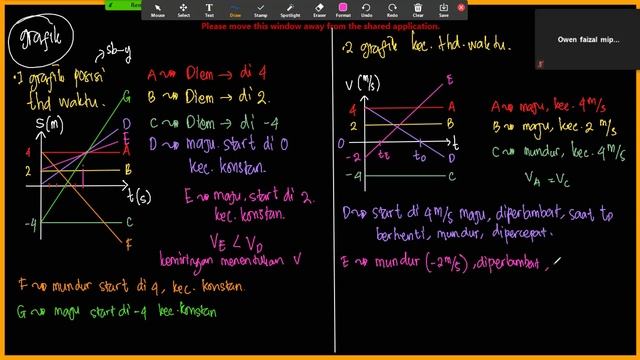 Mouse
Select
Text
Draw
Stamp
Spotlight
Eraser
Format
Undo
Redo
Clear
Save
Please move this window away from the shared application.
Owen faizal mip...
grafik
sb-y
•1 grafik posisi
thd waktu.
S(m)
G
D
E
A
B
C
F
4
2
-4
t(s)
A ~> Diem → di 4
B ~> Diem → di 2.
C ~> Diem → di -4
D ~> maju start di 0
kec. konstan.
E ~> maju. start di 2.
kec. konstan.
V_E < V_D
kemiringan menentukan V
F ~> mundur start di 4, kec. konstan.
G ~> maju start di -4 kec. konstan
•2 grafik kec. thd. waktu.
V (m/s)
E
A
B
D
C
4
2
0
-2
-4
t_E
t_D
t
A ~> maju, kec. 4 m/s
B ~> maju, kec. 2 m/s
C ~> mundur, kec. 4 m/s
V_A = V_C
D ~> start di 4 m/s maju, diperlambat, saat t_D
berhenti, mundur, dipercepat.
E ~> mundur (-2 m/s), diperlambat,